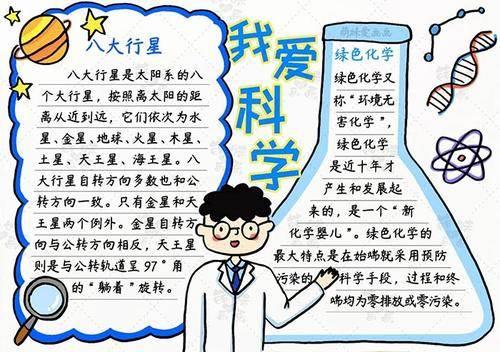 我爱科学
八大行星
八大行星是太阳系的八
个大行星，按照离太阳的距
离从近到远，它们依次为水
星、金星、地球、火星、木星、
土星、天王星、海王星。八
大行星自转方向多数也和公
转方向一致。只有金星和天
王星两个例外。金星自转方
向与公转方向相反，天王星
则是与公转轨道呈97°角
的“躺着”旋转。
萌妹爱画画
绿色化学
绿色化学又
称“环境无
害化学”，
绿色化学
是近十年才
产生和发展起
来的，是一个“新
化学婴儿”。绿色化学的
最大特点是在始端就采用预防
污染的科学手段，过程和终
端均为零排放或零污染。